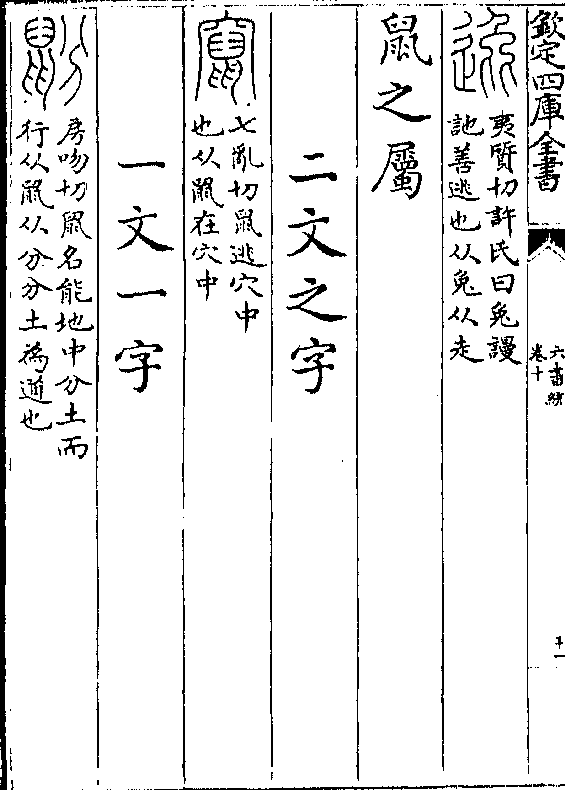 欽定四庫全書
六書統
卷十
十一
逸
夷質切許氏曰兔謾
訑善逃也从兔从走
鼠之屬
二文之字
竄
七亂切鼠逃穴中
也从鼠在穴中
一文一字
鼢
房吻切鼠名能地中分土而
行从鼠从分分土為遁也